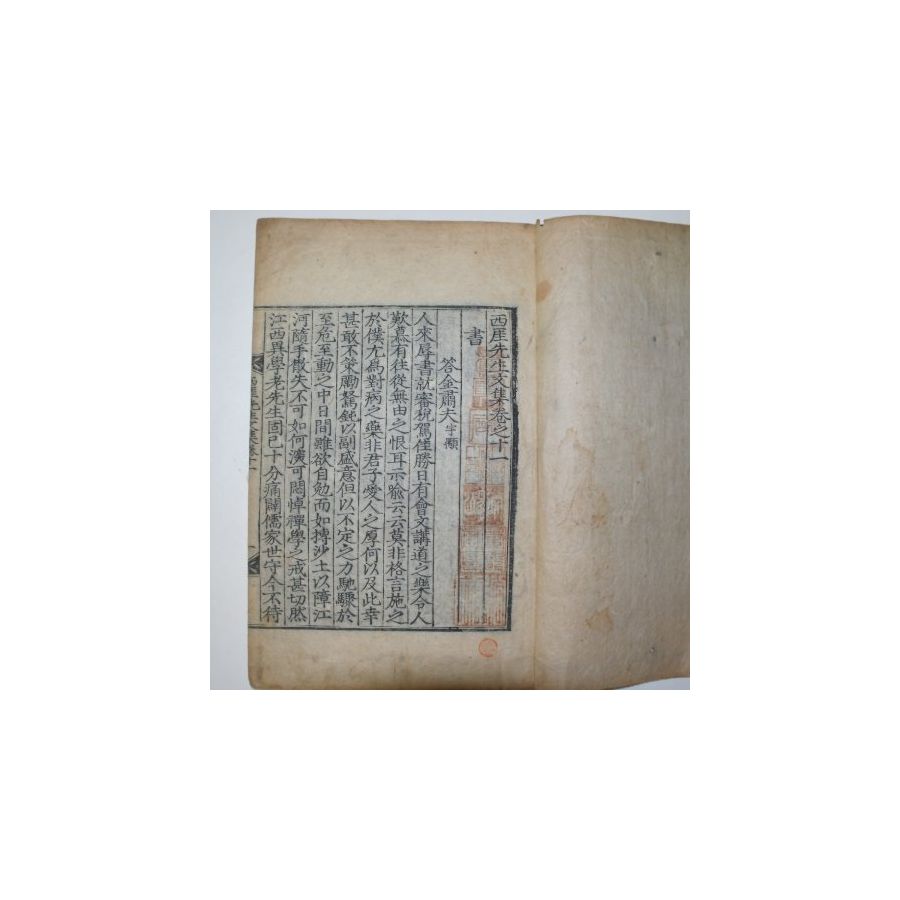 西厓先生文集卷之十一
書
答金肅夫 宇顒
人來辱書就審稅駕佳勝日有會文講道之樂令人
歎慕有往從無由之恨耳示喩云云莫非格言施之
於僕尤爲對病之藥非君子愛人之厚何以及此幸
甚敢不策勵駑鈍以副盛意但以不定之力馳驟於
至危至動之中日間雖欲自勉而如摶沙土以障江
河隨手散失不可如何演可悶悼禪學之戒甚切然
江西異學老先生固已十分痛闢儒家世守今不待